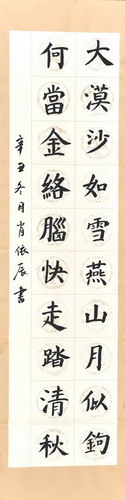 大漠沙如雪燕山月似鉤
何當金絡腦快走踏清秋
辛丑冬月肖依辰書